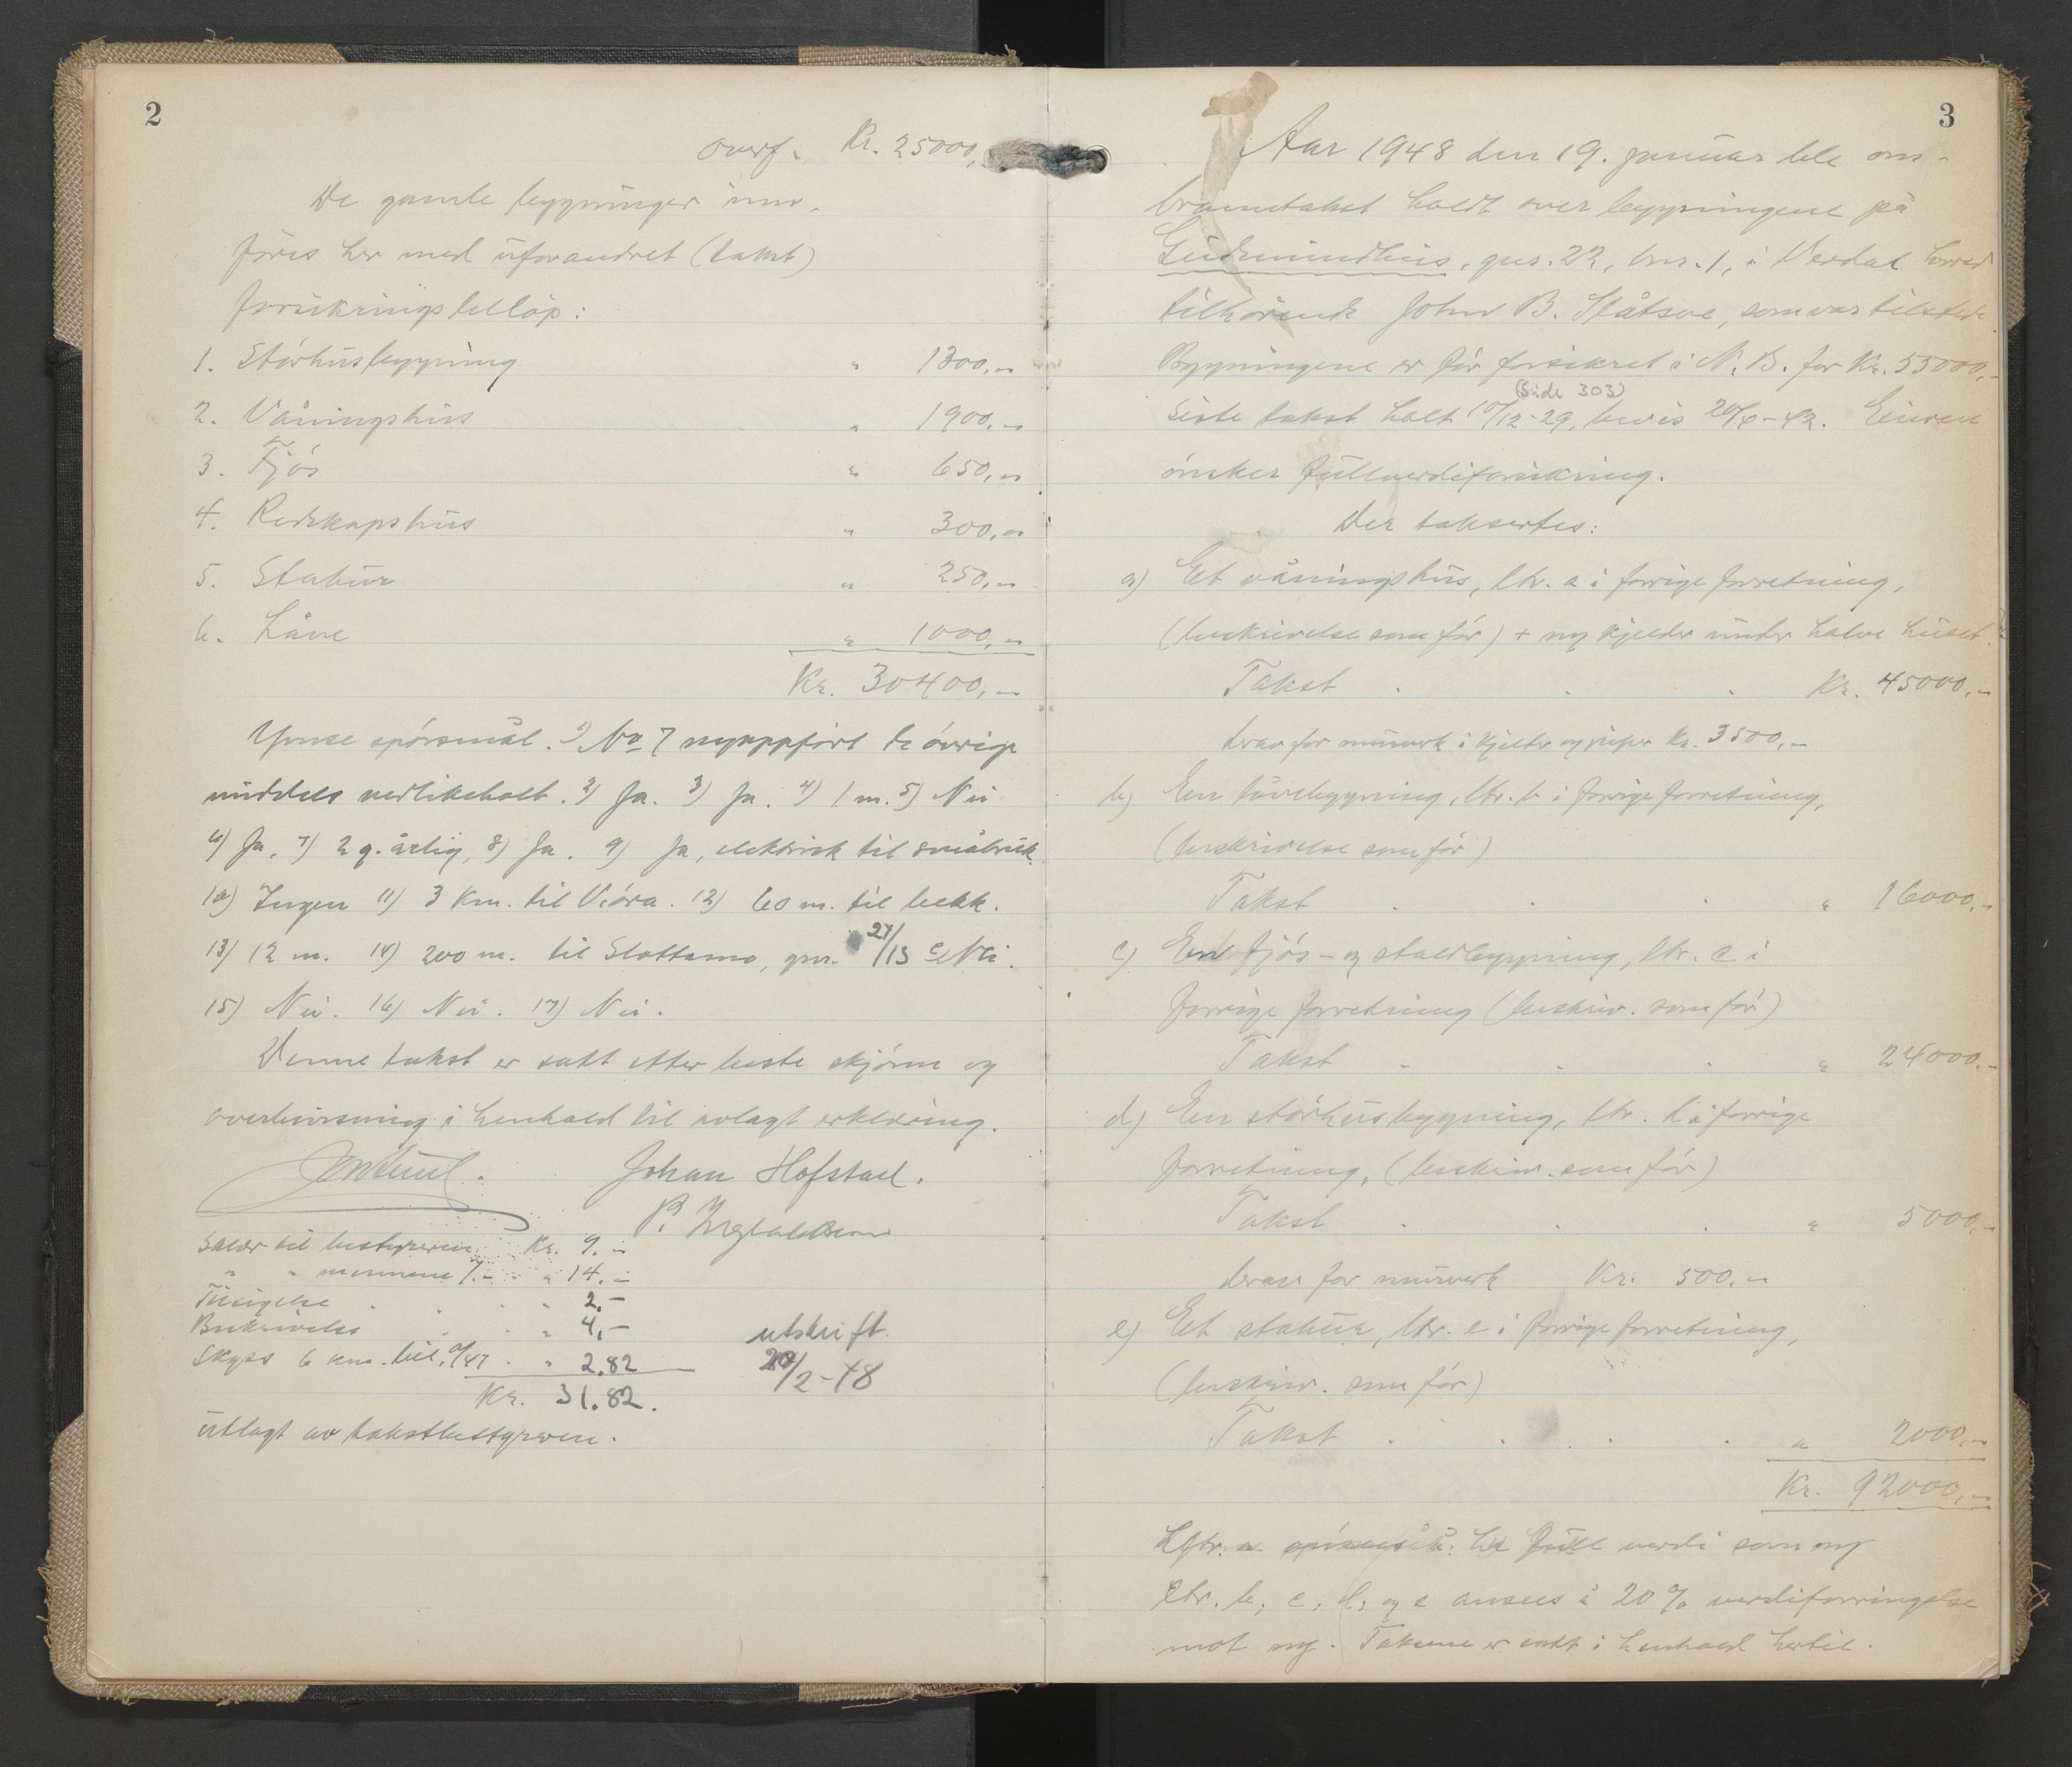 2
Overf. Kr. 25000,-
De gamle bygninger inn-
føres her med uforandret (takst)
forsikringsbeløp:
1. Størhusbygning " 1300,-
2. Våningshus " 1900,-
3. Fjøs " 650,-
4. Redskapshus " 300,-
5. Stabur " 250,-
6. Låve " 1000,-
Kr. 30400,-
Ymse spörsmål. 1) No 7 nyoppfört de övrige
middels vedlikeholt. 2) Ja. 3) Ja. 4) 1 m. 5) Nei
6) Ja. 7) 2 g. årlig, 8) Ja. 9) Ja, elektrisk til småbruk.
10) Ingen 11) 3 Km. til Vöra. 12) 60 m. til bekk.
13) 12 m. 14) 200 m. til Slottamo, gnr. 27/13 Nei.
15) Nei. 16) Nei. 17) Nei.
Denne takst er satt etter beste skjönn og
overbevisning i henhold til avlagt erklæring.
Johan Hofstad.
P.
Salær til bestyreren Kr. 9.-
" " mennene 7.- " 14.-
Tilsigelse " 2.-
Beskrivelse " 4,-
Skyss 6 km. til. a/47 " 2.82
Kr. 31.82.
utskrift.
20/2-48
utlagt av takstbestyreren.
3
Aar 1948 den 19. januar ble om-
branntakst holdt over bygningene på
Gudmundhus, gnr. 22, bnr. 1, i Verdal herred
tilhørende John B. Slåtsve, som var tilstede.
Bygningene er för forsikret i N. B. for Kr. 55000,-
(Side 303)
Siste takst holt 10/12-29, bevis 20/6-42. Eieren
ønsker fullverdiforsikring.
Der taksertes:
a) Et våningshus, ltr. a i forrige forretning,
(beskrivelse som för) + ny kjelder under halve huset.
Takst Kr. 45000,-
derav for murverk i kjelder og piper Kr. 3500,-
b) En låvebygning, ltr. b i forrige forretning,
(beskrivelse som för)
Takst " 16000,-
c) En fjös- og stallbygning, ltr. c i
forrige forretning (beskriv. som för)
Takst " 24000.-
d) En störhusbygning, ltr. d i forrige
forretning, (beskriv. som för)
Takst " 5000,-
derav for murverk Kr. 500,-
e) Et stabur, ltr. e i forrige forretning,
(beskriv. som för)
Takst " 2000,-
Kr. 92000,-
full verdi som ny
Ltr. b, c, d, og e ansees å 20% verdiforringelse
mot ny. Taksene er satt i henhold hertil.